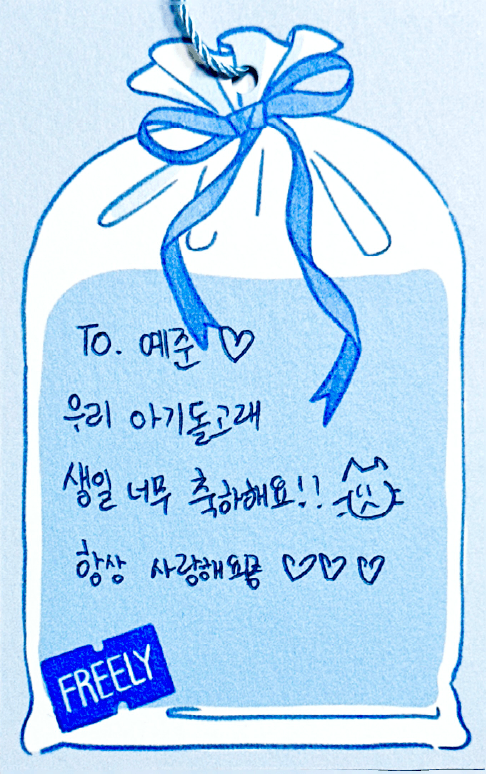 To. 예준 ♡
우리 아기돌고래
생일 너무 축하해요!!
항상 사랑해요쫑 ♡♡♡
FREELY